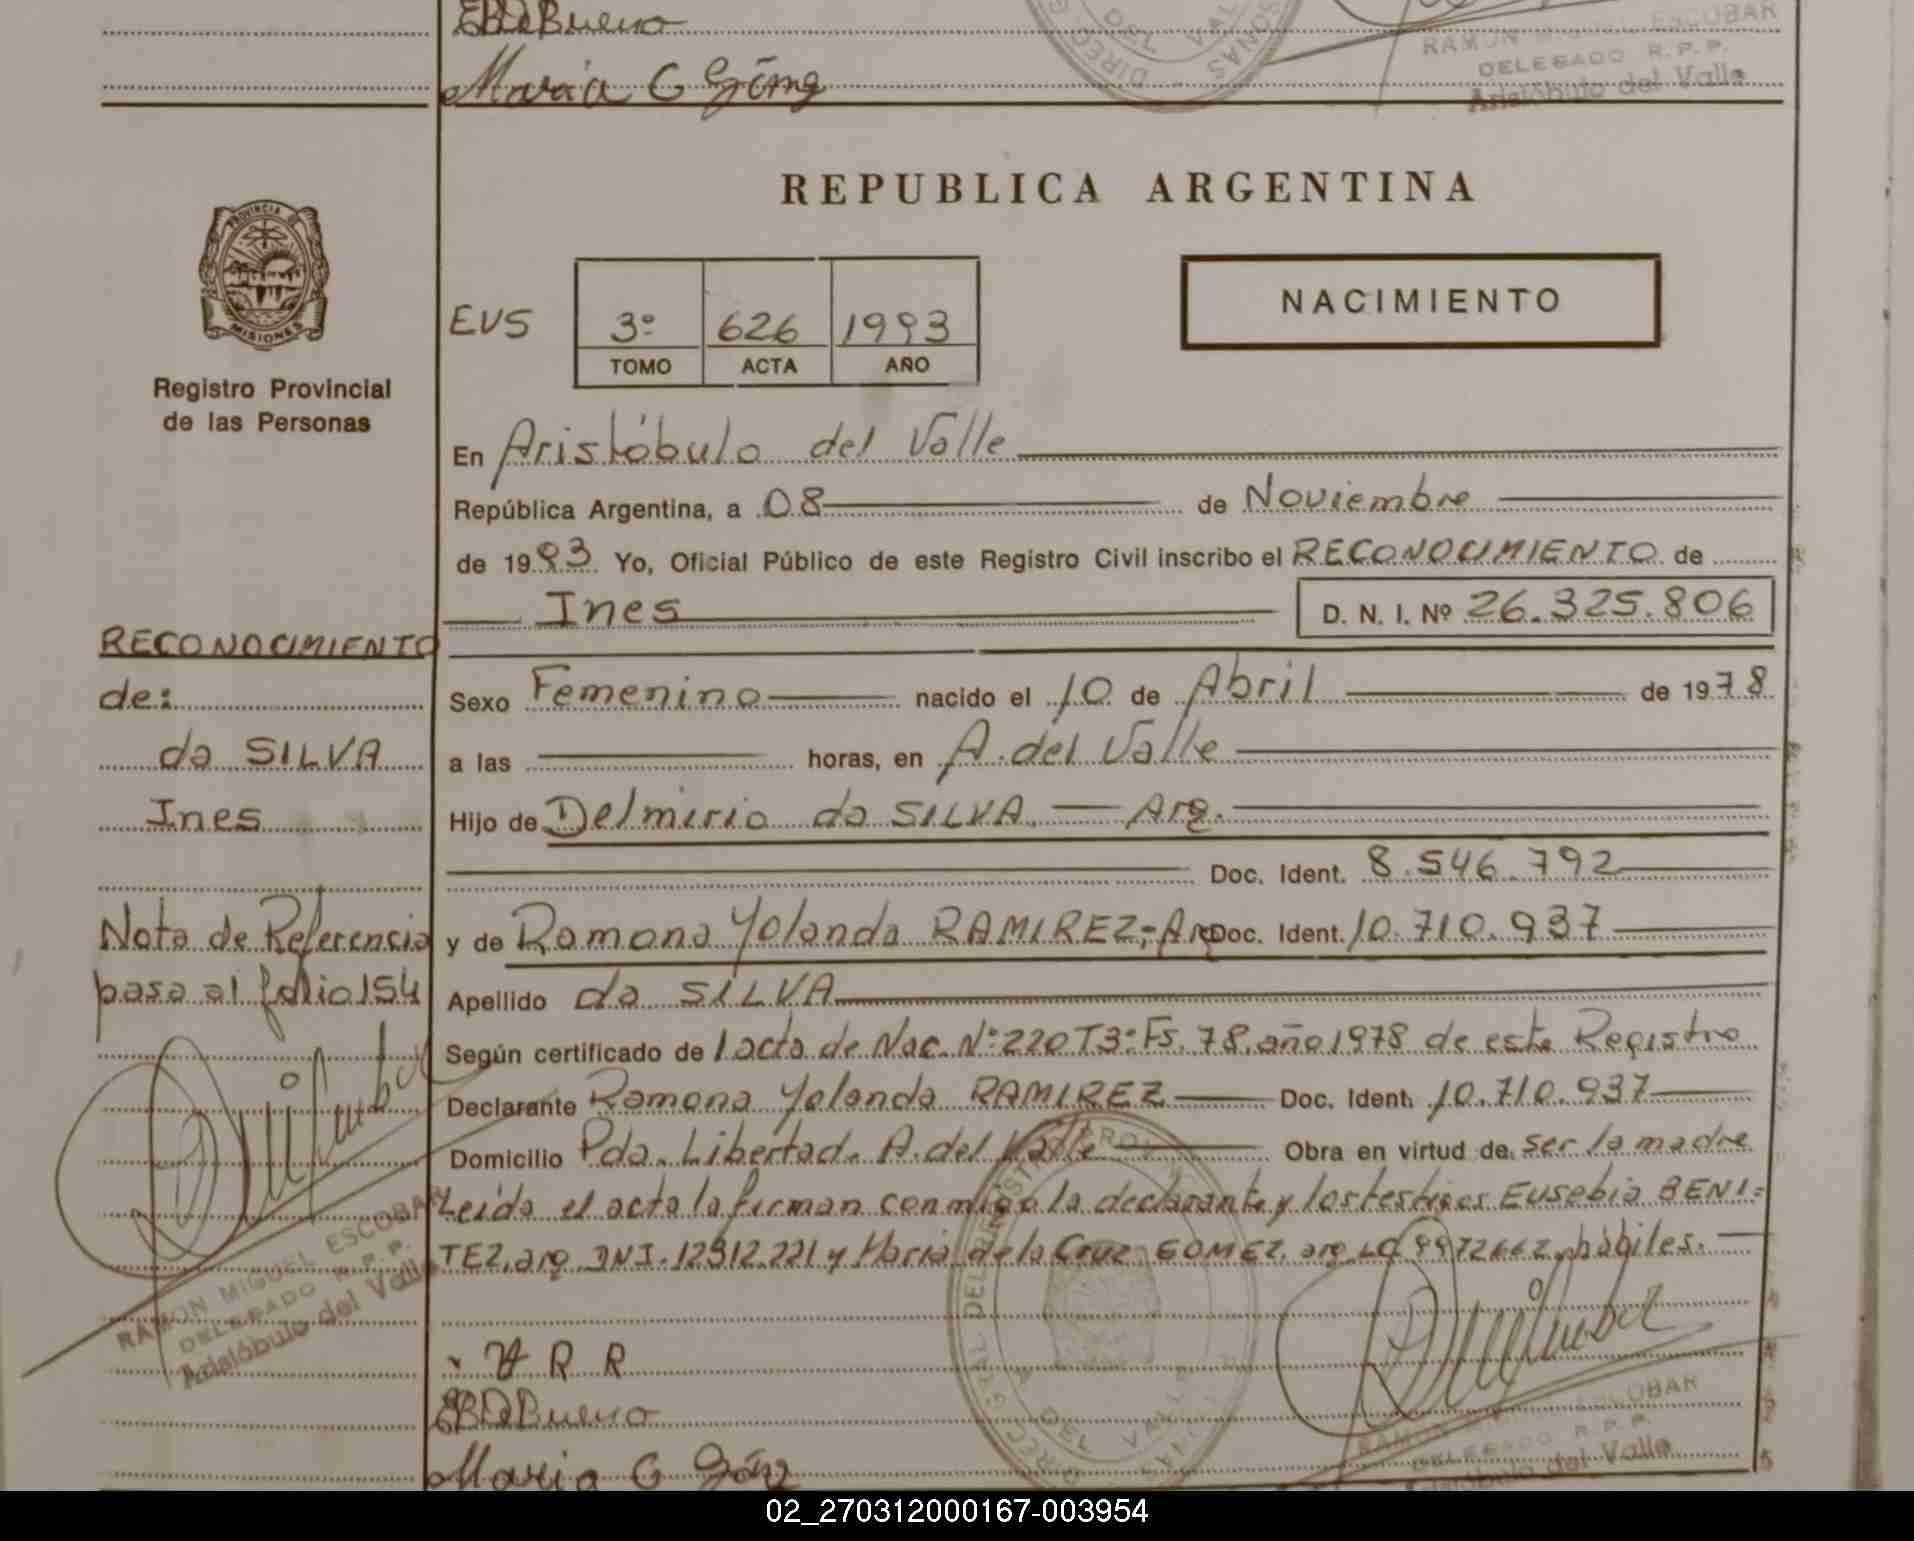 EBDeBueno
Maria C Góme
DIREC
DEL VAL
NAS
RAMON MIGUEL ESCOBAR
DELEGADO R.P.P.
Aristóbulo del Valle
REPUBLICA ARGENTINA
PROVINCIA DE
MISIONES
Registro Provincial
de las Personas
EVS
3º 626 1993
TOMO ACTA AÑO
NACIMIENTO
En Aristóbulo del Valle
República Argentina, a 08 de Noviembre
de 1993 Yo, Oficial Público de este Registro Civil inscribo el RECONOCIMIENTO de
Ines D. N. I. Nº 26.325.806
RECONOCIMIENTO
de:
da SILVA
Ines
Nota de Referencia
pasa al folio 154
Sexo Femenino nacido el 10 de Abril de 1978
a las horas, en A. del Valle
Hijo de Delmirio da SILVA. — Arg.
Doc. Ident. 8.546.792
y de Ramona Yolanda RAMIREZ;- Arg Doc. Ident. 10.710.937
Apellido da SILVA
Según certificado de 1 acta de Nac. Nº 220 T3º Fs. 78 año 1978 de este Registro
Declarante Ramona Yolanda RAMIREZ Doc. Ident. 10.710.937
Domicilio Pda. Libertad. A. del Valle Obra en virtud de ser la madre
Leida el acta la firman conmigo la declarante y los testigos Eusebia BENI=
TEZ, arg DNI. 12912.221 y Maria de la Cruz GOMEZ, arg LC 9972662 habiles.
RAMON MIGUEL ESCOBAR
DELEGADO R.P.P.
Aristóbulo del Valle
Y R R
EBDeBueno
Maria C Góm
DEL VALLE
RAMON MIGUEL ESCOBAR
DELEGADO R.P.P.
Aristóbulo del Valle
02_270312000167-003954